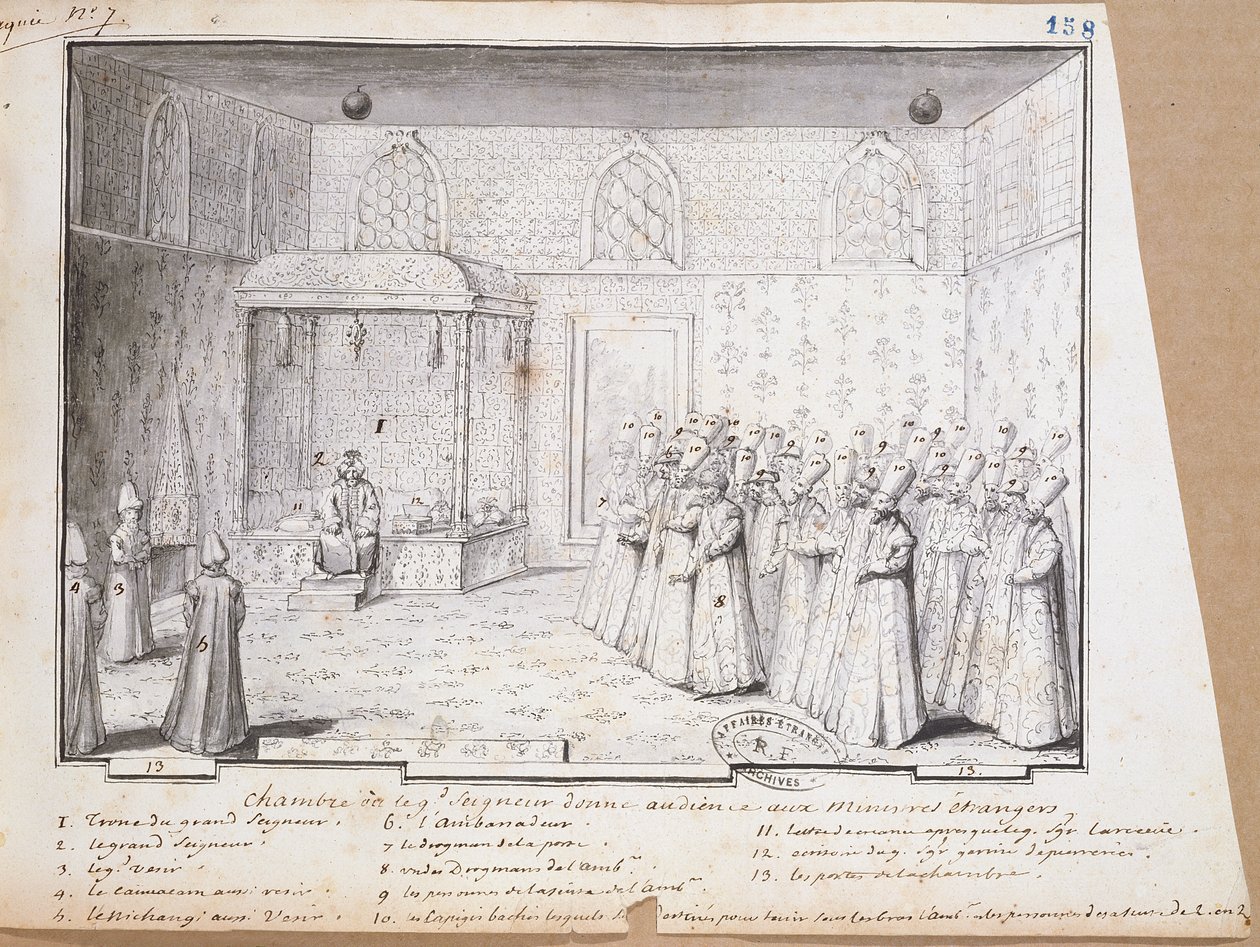 Nº 7
158
1
2
11
12
3
4
5
6
7
8
9
10
13
13.
AFFAIRES ÉTRANGÈRES
R. F.
* ARCHIVES *
Chambre où le gd Seigneur donne audience aux Ministres étrangers
1. Trone du grand Seigneur.
2. le grand Seigneur
3. le gd vesir
4. le caimacam aussi vesir.
5. le Nichangi aussi Vesir.
6. l'ambassadeur.
7 le drogman de la porte.
8. un des Drogmans de l'ambr.
9 les personnes de la suite de l'ambr.
10. les Capigis bachis lesquels destinés pour tenir sous les bras l'ambr et les personnes de sa suite de 2. en 2
11. lettre de creance apres que le g. Sgr l'a receüe.
12. ecritoire du g. Sgr garnie de pierreries.
13. les portes de la chambre.